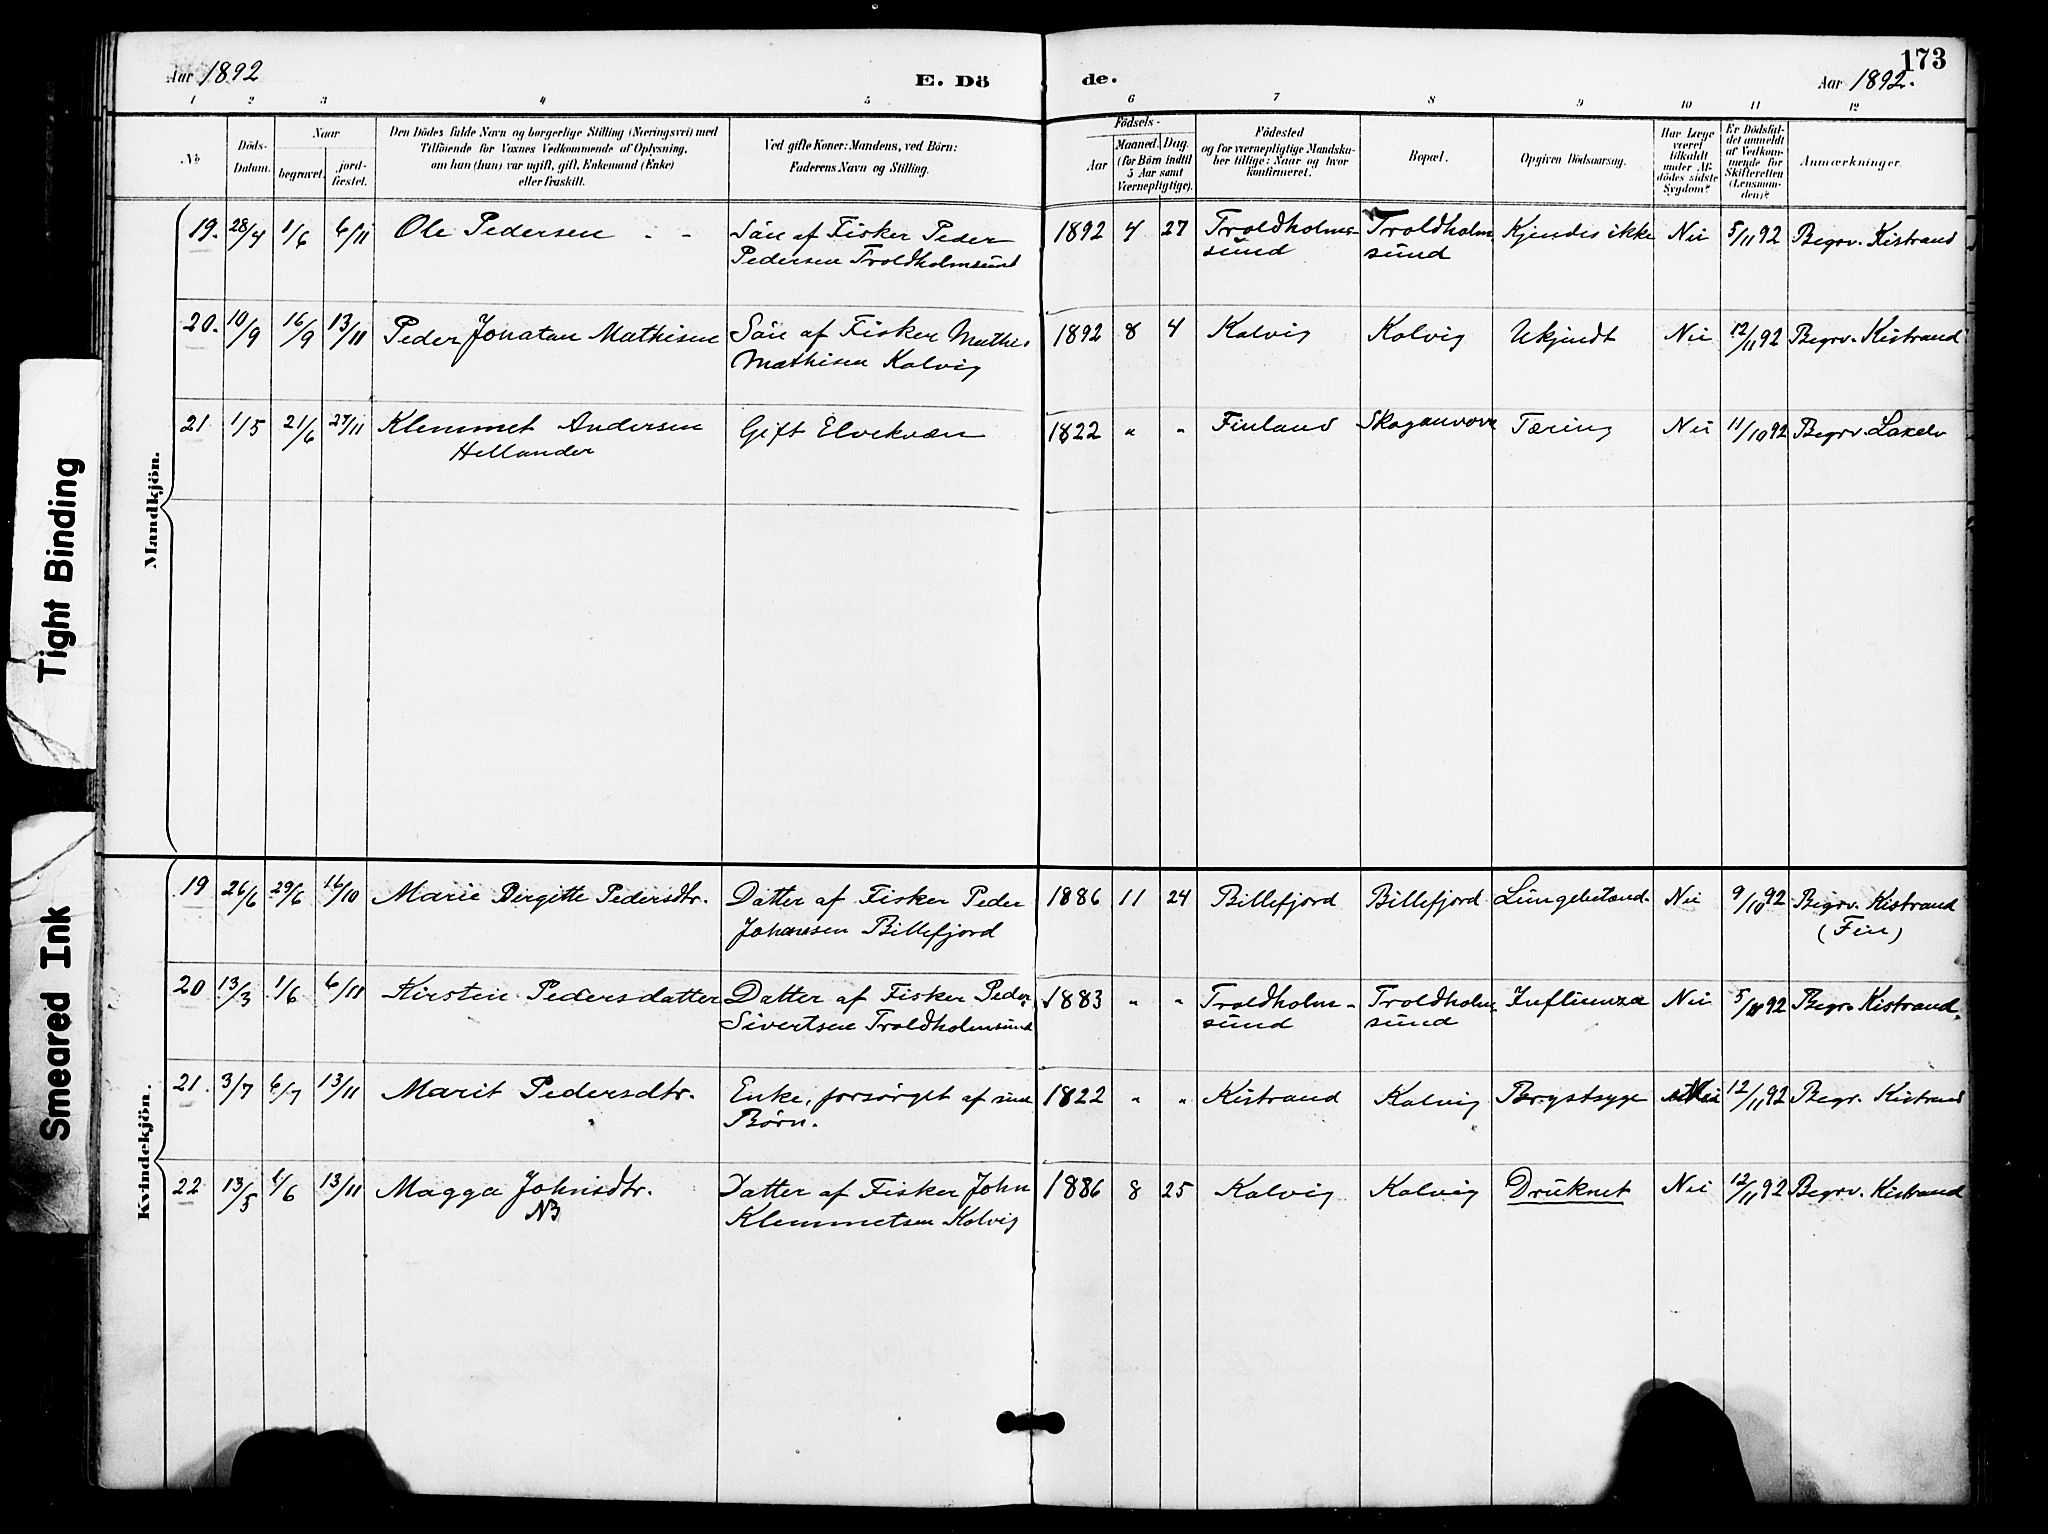 173
Aar 1892
E. Dö
de.
Aar 1892.
1 2 3 4 5 6 7 8 9 10 11 12
No
Döds-
Datum.
Naar
begravet.
jord-
fæstet.
Den Dödes fulde Navn og borgerlige Stilling (Næringsvei) med
Tilföiende for Voxnes Vedkommende af Oplysning,
om han (hun) var ugift, gift, Enkemand (Enke)
eller fraskilt.
Ved gifte Koner: Mandens, ved Börn:
Faderens Navn og Stilling.
Födsels-
Aar
Maaned. Dag.
(for Börn indtil
5 Aar samt
Værnepligtige).
Födested
og for værnepligtige Mandska-
ber tillige: Naar og hvor
konfirmeret.
Bopæl.
Opgiven Dödsaarsag.
Har Læge
været
tilkaldt
under Af-
dödes sidste
Sygdom?
Er Dödsfal-
det anmeldt
af Vedkom-
mende for
Skifteretten
(Lensman-
den)?
Anmærkninger.
Mandkjön.
19. 28/4 1/6 6/11 Ole Pedersen - - Sön af Fisker Peder 1892 4 27 Troldholm- Troldholm Kjendes ikke Nei 5/11 92 Begrv. Kistrand
Pedersen Troldholmsund sund sund
20. 10/9 16/9 13/11 Peder Jonatan Mathisen Sön af Fisker Mathis 1892 8 4 Kolvig Kolvig Ukjendt Nei 12/11 92 Begrv. Kistrand
Mathisen Kolvig
21 1/5 21/6 27/11 Klemmet Andersen Gift Elvekvæn 1822 " " Finland Skoganvarre Tæring Nei 11/10 92 Begrv. Laxelv
Hellander
Kvindekjön.
19 26/6 29/6 16/10 Marie Birgitte Pedersdtr. Datter af Fisker Peder 1886 11 24 Billefjord Billefjord Lungebetænd. Nei 9/10 92 Begrv. Kistrand
Johannsen Billefjord (Fin)
20 13/3 1/6 6/11 Kirstin Pedersdatter Datter af Fisker Peder 1883 " " Troldholm- Troldholm- Influenza Nei 5/11 92 Begr. Kistrand.
Sivertsen Troldholmsund sund sund
21. 3/7 6/7 13/11 Marit Pedersdtr. Enke, forsörget af sine 1822 " " Kistrand Kolvig Brystsyge Nei 12/11 92 Begr. Kistrand
Börn.
22 13/5 6/6 13/11 Magga Johnsdtr. Datter af Fisker John 1886 8 25 Kolvig Kolvig Druknet Nei 12/11 92 Begrv. Kistrand
NB Klemmetsen Kolvig
Tight Binding
Smeared Ink